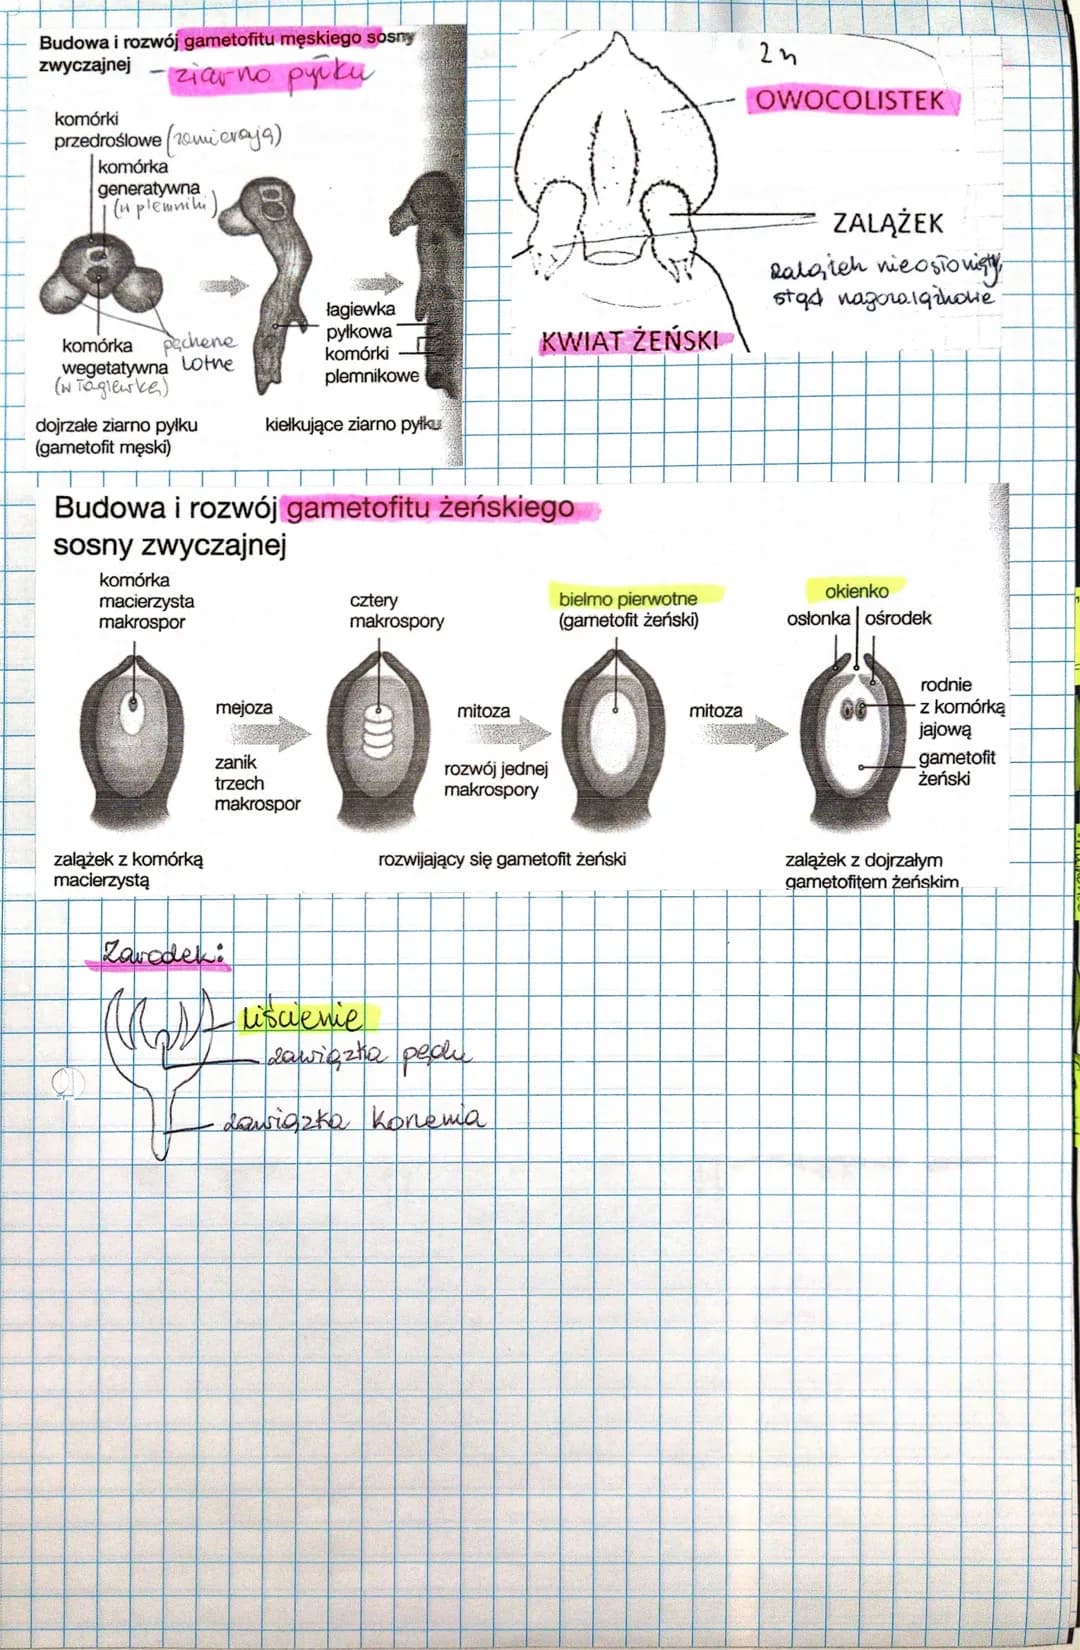 Budowa i rozwój gametofitu męskiego sosny
zwyczajnej – ziarno pyłku
komórki
przedroślowe (zamierają)
komórka
generatywna
(w plemniki)
komórka
wegetatywna
(w łagiewkę)
pęcherze
lotne
łagiewka
pyłkowa
komórki
plemnikowe
dojrzałe ziarno pyłku
(gametofit męski)
kiełkujące ziarno pyłku
2n
OWOCOLISTEK
ZALĄŻEK
zalążek nieosłonięty,
stąd nagozalążkowe
KWIAT ŻEŃSKI
Budowa i rozwój gametofitu żeńskiego
sosny zwyczajnej
komórka
macierzysta
makrospor
mejoza
zanik
trzech
makrospor
cztery
makrospory
mitoza
rozwój jednej
makrospory
bielmo pierwotne
(gametofit żeński)
mitoza
okienko
osłonka
ośrodek
rodnie
z komórką
jajową
gametofit
żeński
zalążek z komórką
macierzystą
rozwijający się gametofit żeński
zalążek z dojrzałym
gametofitem żeńskim
Zarodek:
liścienie
zawiązka pędu
zawiązka korzenia